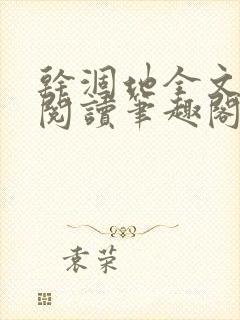 幹涸地全文
閱讀筆趣閣
袁荣